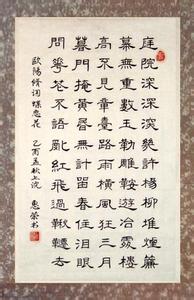 庭院深深深幾許楊柳堆煙簾
幕無重數玉勒雕鞍遊冶處樓
高不見章臺路雨橫風狂三月
暮門掩黃昏無計留春住淚眼
問花花不語亂紅飛過鞦韆去
歐陽修詞蝶恋花 乙酉孟秋上浣 惠榮书